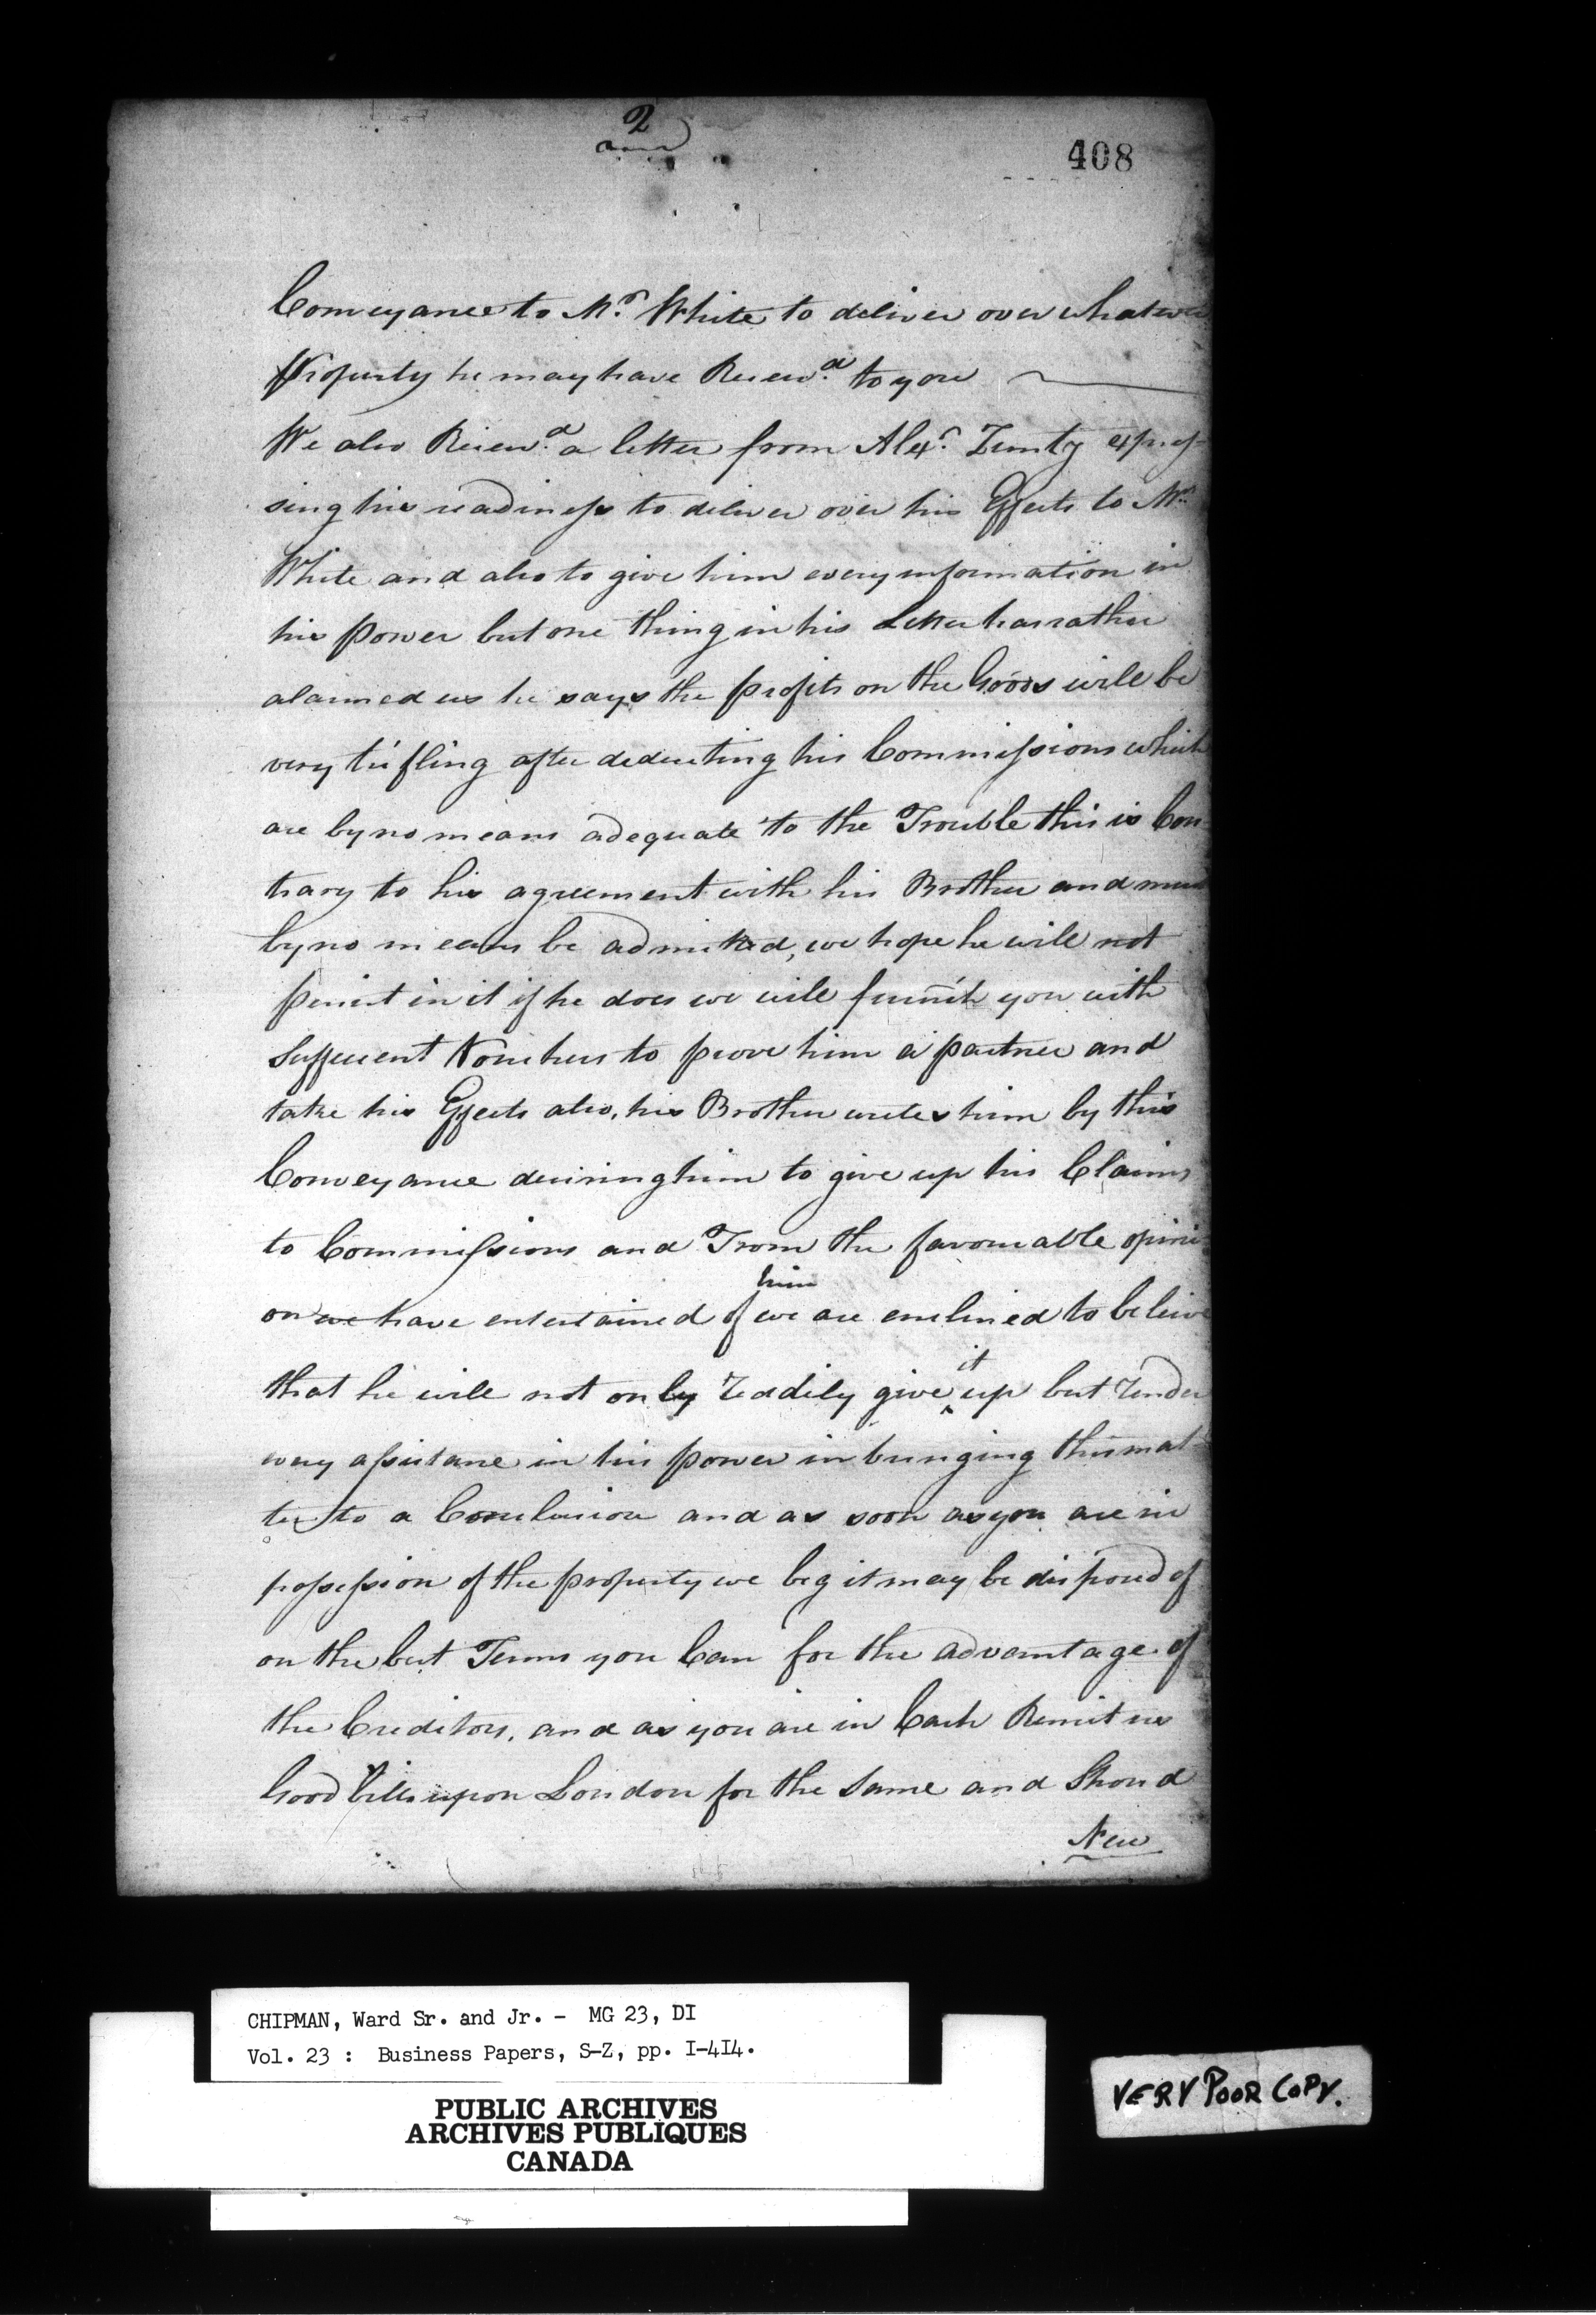 2
408
Conveyance to Mr. White to deliver over whatever
Property he may have Receivd. to you
We also Receivd. a letter from Alexr. expres-
sing his readiness to deliver over his Effects to Mr.
White and also to give him every information in
his power but one thing in his Letter has rather
alarmed us he says the profits on the Goods will be
very trifling after deducting his Commissions which
are by no means adequate to the Trouble this is Con-
trary to his agreement with his Brother and must
by no means be admitted, we hope he will not
persist in it if he does we will furnish you with
Sufficient Vouchers to prove him a partner and
take his Effects also, his Brother writes him by this
Conveyance desiring him to give up his Claims
to Commissions and From the favourable opini-
on we have entertained of him we are enclined to beleive
that he will not only readily give it up but render
every assistance in his power in bringing this mat-
ter to a Conclusion and as soon as you are in
possession of the property we beg it may be disposed of
on the best Terms you Can for the advantage of
the Creditors, and as you are in Cash Remit us
Good bills upon London for the Same and Shoud
New
CHIPMAN, Ward Sr. and Jr. - MG 23, DI
Vol. 23 : Business Papers, S-Z, pp. I-4I4.
PUBLIC ARCHIVES
ARCHIVES PUBLIQUES
CANADA
VERY POOR COPY.